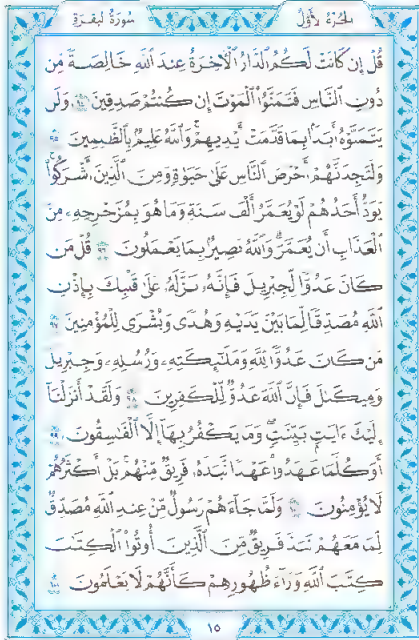 الجزء الأول
سورة البقرة
قُلْ إِن كَانَتْ لَكُمُ ٱلدَّارُ ٱلْأَخِرَةُ عِندَ ٱللَّهِ خَالِصَةً مِّن
دُونِ ٱلنَّاسِ فَتَمَنَّوُا۟ ٱلْمَوْتَ إِن كُنتُمْ صَٰدِقِينَ ٩٤ وَلَن
يَتَمَنَّوْهُ أَبَدًۢا بِمَا قَدَّمَتْ أَيْدِيهِمْ ۗ وَٱللَّهُ عَلِيمٌۢ بِٱلظَّٰلِمِينَ ٩٥
وَلَتَجِدَنَّهُمْ أَحْرَصَ ٱلنَّاسِ عَلَىٰ حَيَوٰةٍ وَمِنَ ٱلَّذِينَ أَشْرَكُوا۟ ۚ
يَوَدُّ أَحَدُهُمْ لَوْ يُعَمَّرُ أَلْفَ سَنَةٍ وَمَا هُوَ بِمُزَحْزِحِهِۦ مِنَ
ٱلْعَذَابِ أَن يُعَمَّرَ ۗ وَٱللَّهُ بَصِيرٌۢ بِمَا يَعْمَلُونَ ٩٦ قُلْ مَن
كَانَ عَدُوًّا لِّجِبْرِيلَ فَإِنَّهُۥ نَزَّلَهُۥ عَلَىٰ قَلْبِكَ بِإِذْنِ
ٱللَّهِ مُصَدِّقًا لِّمَا بَيْنَ يَدَيْهِ وَهُدًى وَبُشْرَىٰ لِلْمُؤْمِنِينَ ٩٧
مَن كَانَ عَدُوًّا لِّلَّهِ وَمَلَٰٓئِكَتِهِۦ وَرُسُلِهِۦ وَجِبْرِيلَ
وَمِيكَىٰلَ فَإِنَّ ٱللَّهَ عَدُوٌّ لِّلْكَٰفِرِينَ ٩٨ وَلَقَدْ أَنزَلْنَآ
إِلَيْكَ ءَايَٰتٍۭ بَيِّنَٰتٍ ۖ وَمَا يَكْفُرُ بِهَآ إِلَّا ٱلْفَٰسِقُونَ ٩٩
أَوَكُلَّمَا عَٰهَدُوا۟ عَهْدًا نَّبَذَهُۥ فَرِيقٌ مِّنْهُم ۚ بَلْ أَكْثَرُهُمْ
لَا يُؤْمِنُونَ ١٠٠ وَلَمَّا جَآءَهُمْ رَسُولٌ مِّنْ عِندِ ٱللَّهِ مُصَدِّقٌ
لِّمَا مَعَهُمْ نَبَذَ فَرِيقٌ مِّنَ ٱلَّذِينَ أُوتُوا۟ ٱلْكِتَٰبَ
كِتَٰبَ ٱللَّهِ وَرَآءَ ظُهُورِهِمْ كَأَنَّهُمْ لَا يَعْلَمُونَ ١٠١
١٥